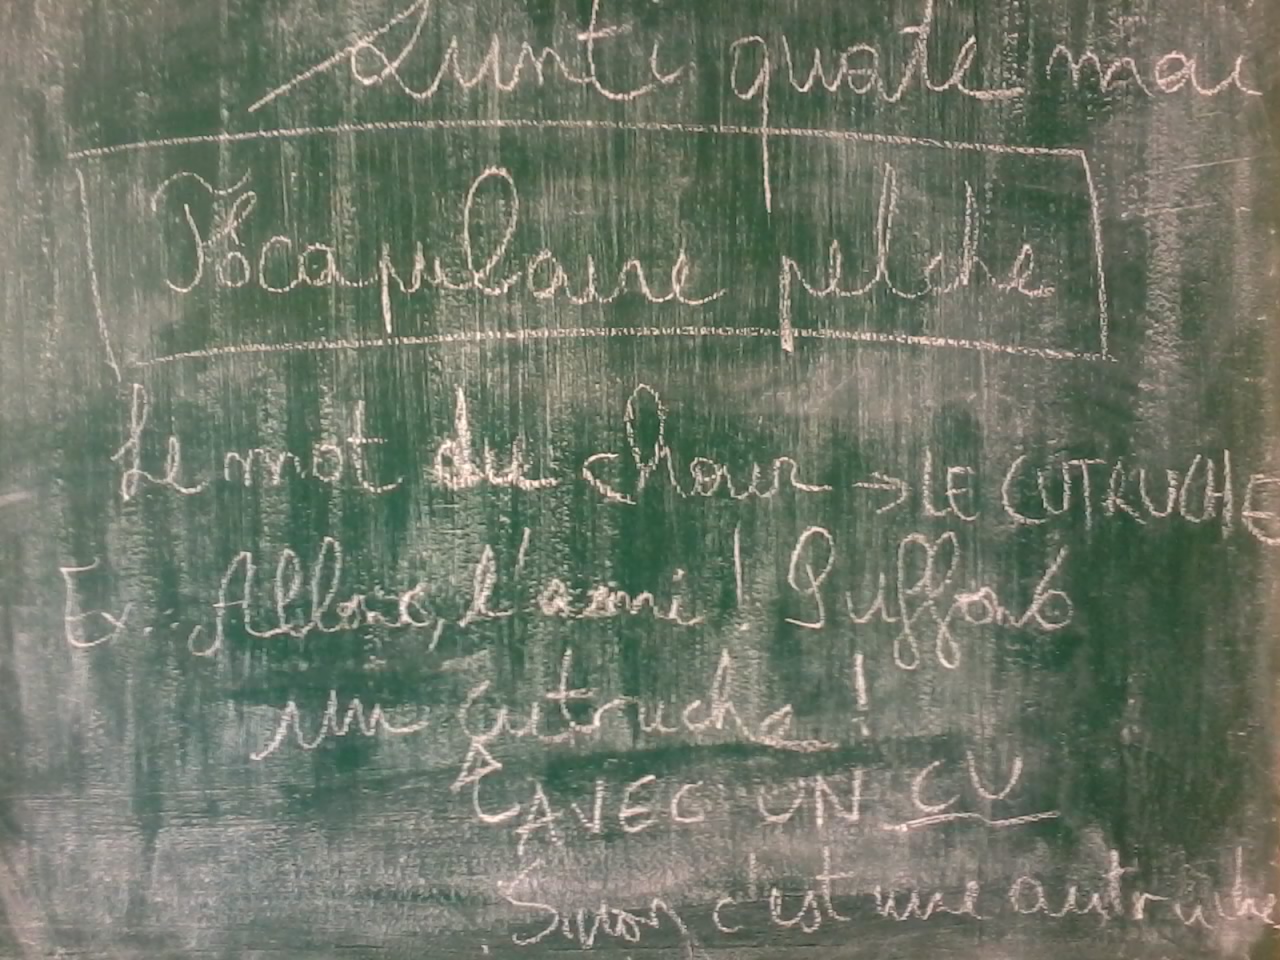 Lunti quate mai
Focapulaire pelche
Le mot du chour → LE CUTRUCHE
Ex. Allonc, l'ami ! Puffons
un cutruche !
AVEC UN CU
Sinon c'est une autruche